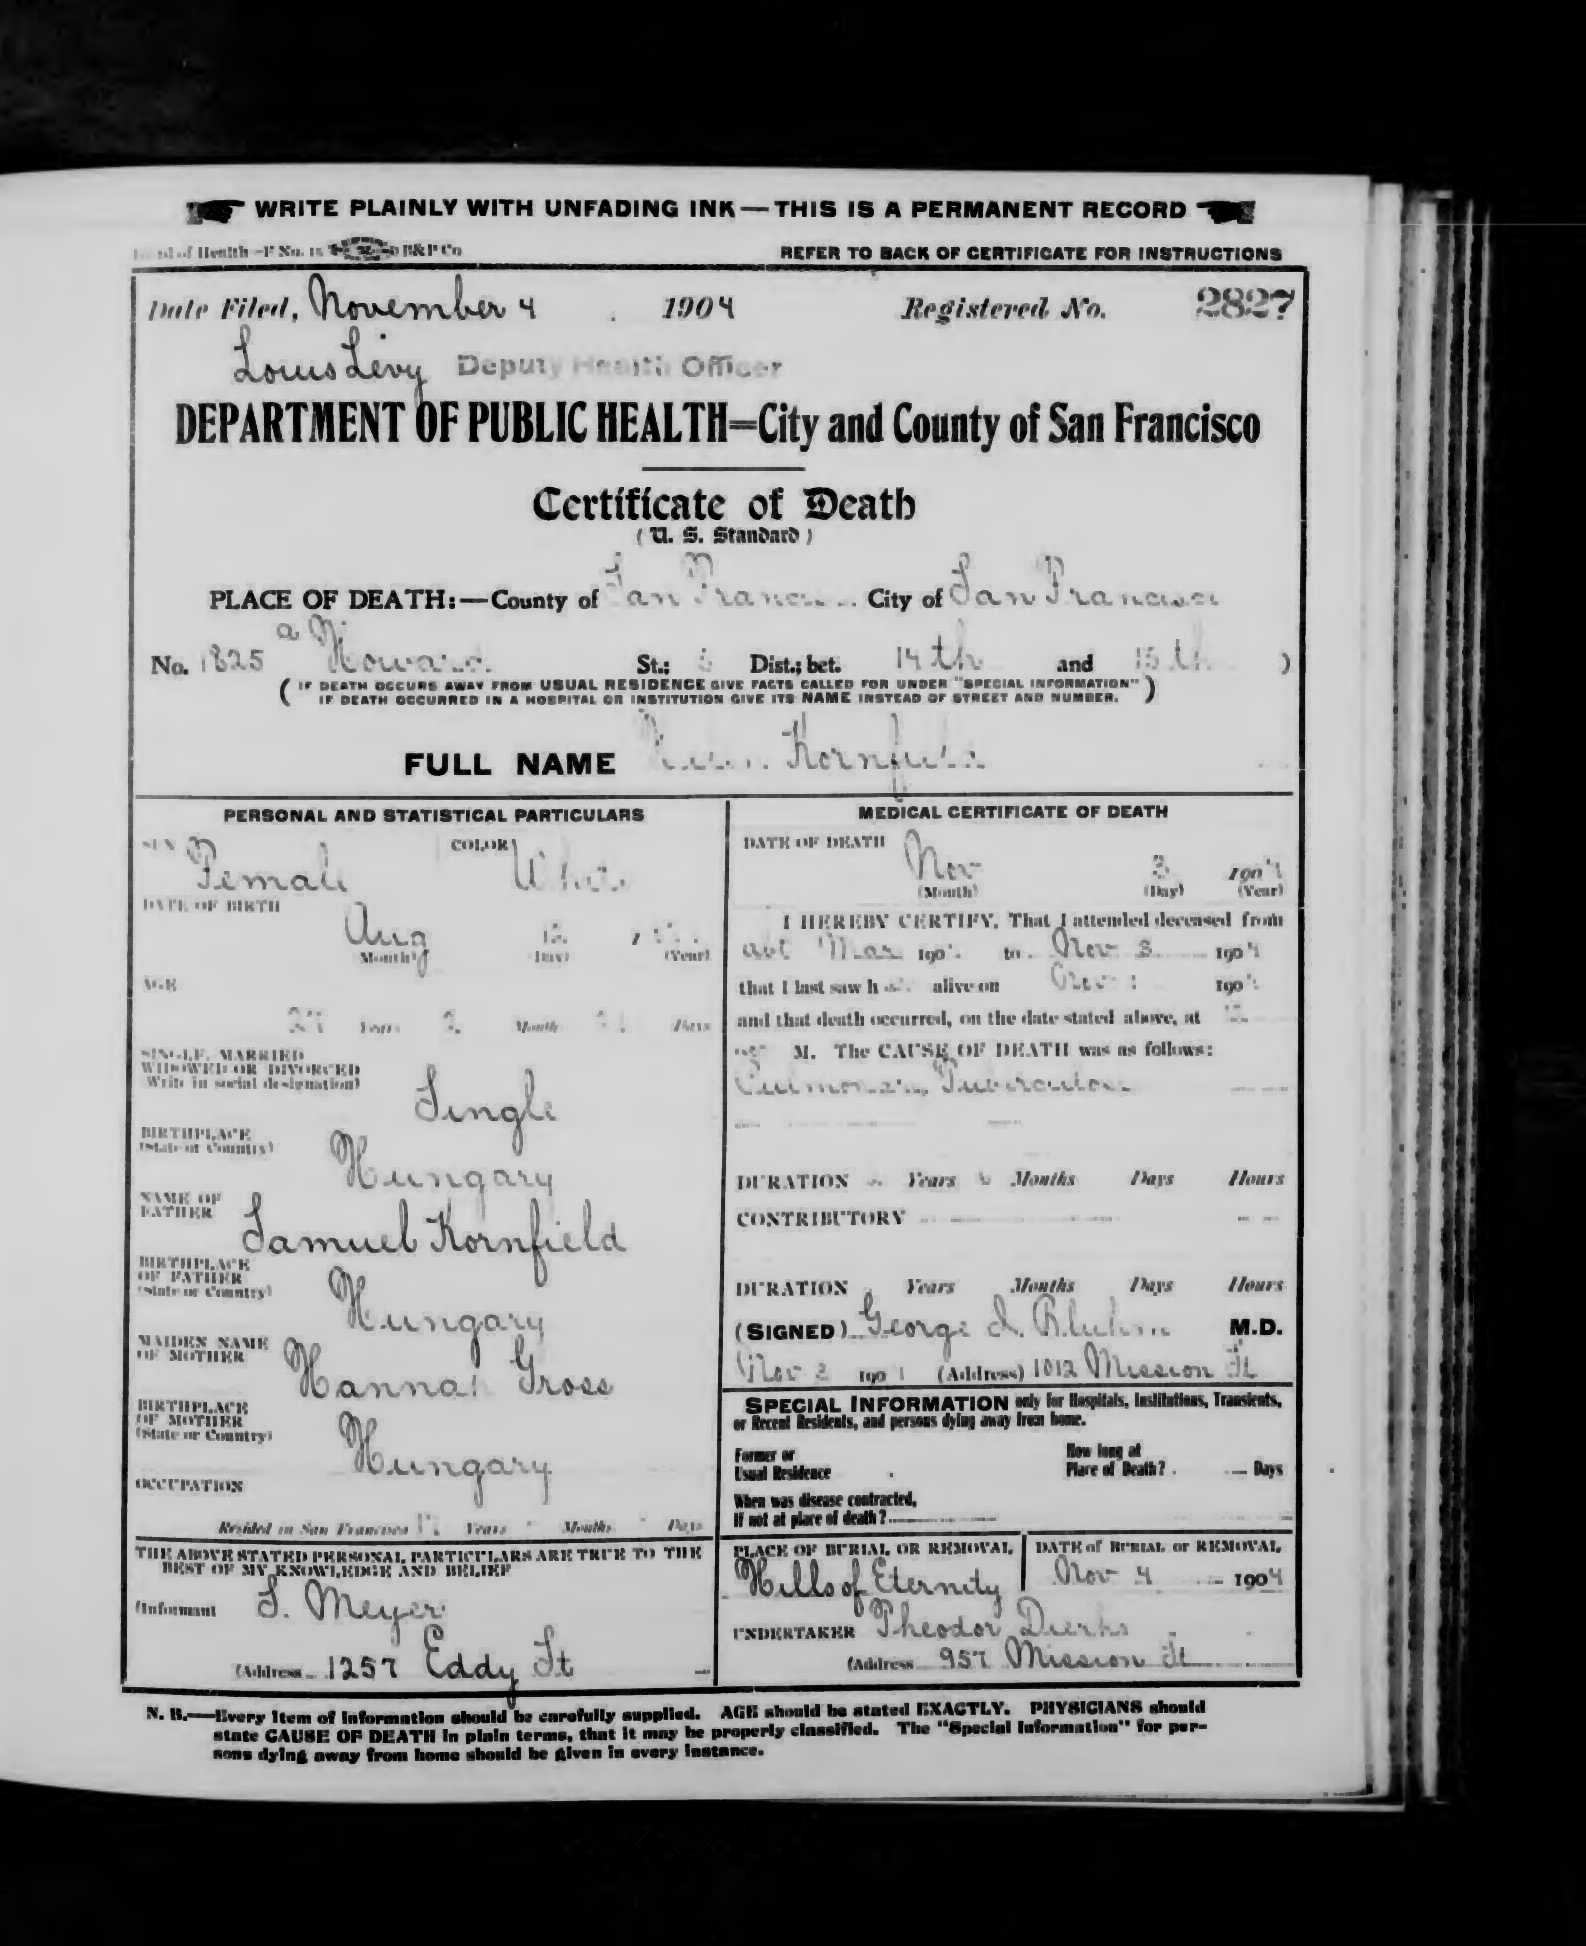 WRITE PLAINLY WITH UNFADING INK—THIS IS A PERMANENT RECORD
of Health—F No. 15 B&P Co
REFER TO BACK OF CERTIFICATE FOR INSTRUCTIONS
Date Filed, November 4 1904 Registered No. 2827
Louis Levy Deputy Health Officer
DEPARTMENT OF PUBLIC HEALTH=City and County of San Francisco
Certificate of Death
(U. S. Standard)
PLACE OF DEATH:—County of San Francisco City of San Francisco
No. 1825 a Howard St.; Dist.; bet. 14th and 15th )
(IF DEATH OCCURS AWAY FROM USUAL RESIDENCE GIVE FACTS CALLED FOR UNDER "SPECIAL INFORMATION"
IF DEATH OCCURRED IN A HOSPITAL OR INSTITUTION GIVE ITS NAME INSTEAD OF STREET AND NUMBER.)
FULL NAME Kornfield
PERSONAL AND STATISTICAL PARTICULARS
SEX Female COLOR White
DATE OF BIRTH
Aug
(Month) (Day) (Year)
AGE
Years Months Days
SINGLE, MARRIED
WIDOWED OR DIVORCED
(Write in social designation)
Single
BIRTHPLACE
(State or Country)
Hungary
NAME OF
FATHER
Samuel Kornfield
BIRTHPLACE
OF FATHER
(State or Country)
Hungary
MAIDEN NAME
OF MOTHER
Hannah Gross
BIRTHPLACE
OF MOTHER
(State or Country)
Hungary
OCCUPATION
Resided in San Francisco Years Months Days
THE ABOVE STATED PERSONAL PARTICULARS ARE TRUE TO THE
BEST OF MY KNOWLEDGE AND BELIEF
(Informant S. Meyer
(Address 1257 Eddy St
MEDICAL CERTIFICATE OF DEATH
DATE OF DEATH
Nov 3 1904
(Month) (Day) (Year)
I HEREBY CERTIFY, That I attended deceased from
abt Mar 190 to Nov 3 1904
that I last saw h alive on Nov 190
and that death occurred, on the date stated above, at
M. The CAUSE OF DEATH was as follows:
Pulmonary Tuberculosis
DURATION Years Months Days Hours
CONTRIBUTORY
DURATION Years Months Days Hours
(SIGNED) George I. Bluhm M.D.
Nov 3 190 (Address) 1012 Mission St
SPECIAL INFORMATION only for Hospitals, Institutions, Transients,
or Recent Residents, and persons dying away from home.
Former or
Usual Residence
How long at
Place of Death? Days
When was disease contracted,
If not at place of death?
PLACE OF BURIAL OR REMOVAL
Hills of Eternity
DATE of BURIAL or REMOVAL
Nov 4 1904
UNDERTAKER Theodor Dierks
(Address 957 Mission St
N. B.—Every item of information should be carefully supplied. AGE should be stated EXACTLY. PHYSICIANS should
state CAUSE OF DEATH in plain terms, that it may be properly classified. The "Special Information" for per-
sons dying away from home should be given in every instance.